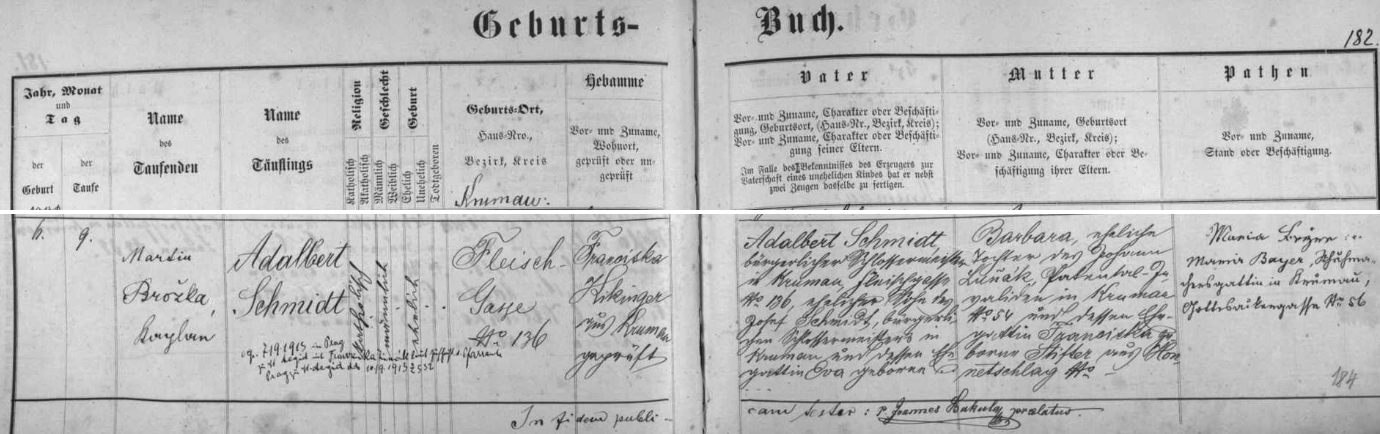 Geburts-
Buch.
182.
Jahr, Monat
und
Tag
der
Geburt
der
Taufe
Name
des
Taufenden
Name
des
Täuflings
Religion
Katholisch
Akatholisch
Geschlecht
Männlich
Weiblich
Geburt
Ehelich
Unehelich
Todtgeboren
Geburts-Ort,
Haus-Nro.,
Bezirk, Kreis
Krumau.
Hebamme
Vor- und Zuname,
Wohnort,
geprüft oder un-
geprüft
Vater
Vor- und Zuname, Charakter oder Beschäfti-
gung, Geburtsort, (Haus-Nr., Bezirk, Kreis);
Vor- und Zuname, Charakter oder Beschäfti-
gung seiner Eltern.
Im Falle des Bekenntnisses des Erzeugers zur
Vaterschaft eines unehelichen Kindes hat er nebst
zwei Zeugen dasselbe zu fertigen.
Mutter
Vor- und Zuname, Geburtsort
(Haus-Nr., Bezirk, Kreis);
Vor- und Zuname, Charakter oder Be-
schäftigung ihrer Eltern.
Pathen
Vor- und Zuname,
Stand oder Beschäftigung.
6.
9.
Martin
Brožka,
Kaplan
Adalbert
Schmidt
katholisch
männlich
ehelich
Fleisch-
Gasse
No 136
Franciska
Kikinger
aus Krumau
geprüft
Adalbert Schmidt
bürgerlicher Schlossermeister
in Krumau, Fleischgasse
No 136, ehelicher Sohn des
Josef Schmidt, bürgerli-
chen Schlossermeisters in
Krumau und dessen Ehe-
gattin Eva geborne
Barbara, eheliche
Tochter des Johann
Luňák, Patental-In-
validen in Krumau
No 54 und dessen Ehe-
gattin Franciska ge-
borne Stifter aus Hon-
netschlag No -
Maria
Maria Bayer, Schuhma-
chersgattin in Krumau,
No 56
184
In fidem publi-
cam testor: P. Joannes praelatus.